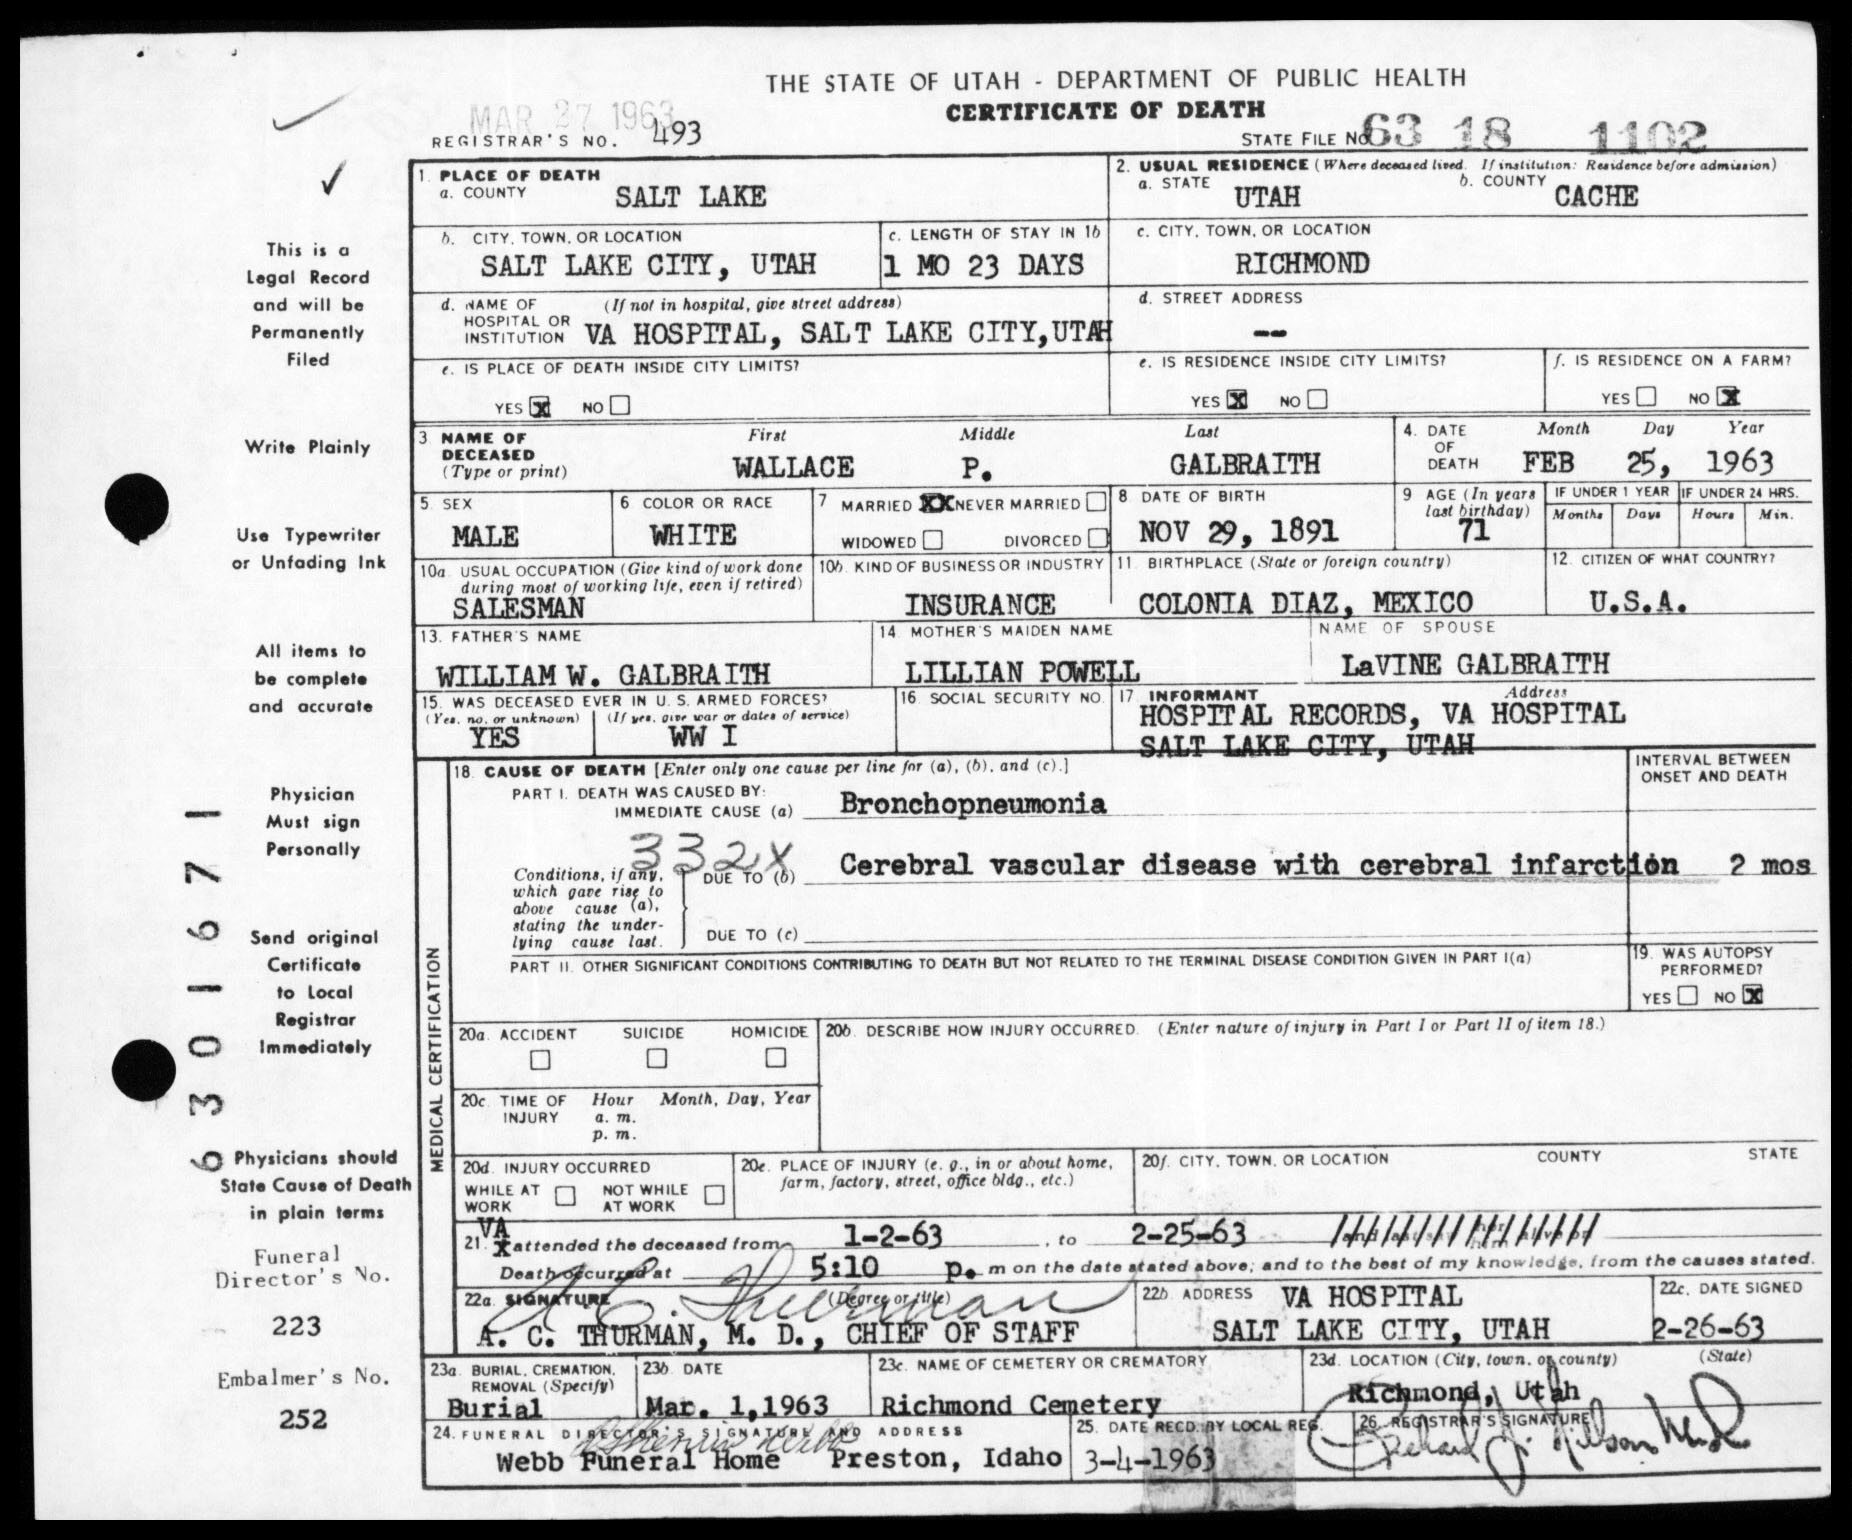 THE STATE OF UTAH - DEPARTMENT OF PUBLIC HEALTH
CERTIFICATE OF DEATH
MAR 27 1963
REGISTRAR'S NO. 493
STATE FILE NO. 63 18 1102
This is a
Legal Record
and will be
Permanently
Filed
Write Plainly
Use Typewriter
or Unfading Ink
All items to
be complete
and accurate
Physician
Must sign
Personally
Send original
Certificate
to Local
Registrar
Immediately
Physicians should
State Cause of Death
in plain terms
Funeral
Director's No.
223
Embalmer's No.
252
6301671
1. PLACE OF DEATH
a. COUNTY SALT LAKE
2. USUAL RESIDENCE (Where deceased lived. If institution: Residence before admission)
a. STATE UTAH b. COUNTY CACHE
b. CITY, TOWN, OR LOCATION
SALT LAKE CITY, UTAH
c. LENGTH OF STAY IN 1b
1 MO 23 DAYS
c. CITY, TOWN, OR LOCATION
RICHMOND
d. NAME OF HOSPITAL OR INSTITUTION (If not in hospital, give street address)
VA HOSPITAL, SALT LAKE CITY,UTAH
d. STREET ADDRESS
--
e. IS PLACE OF DEATH INSIDE CITY LIMITS?
YES X NO
e. IS RESIDENCE INSIDE CITY LIMITS?
YES X NO
f. IS RESIDENCE ON A FARM?
YES NO X
3. NAME OF DECEASED (Type or print)
First Middle Last
WALLACE P. GALBRAITH
4. DATE OF DEATH Month Day Year
FEB 25, 1963
5. SEX
MALE
6 COLOR OR RACE
WHITE
7 MARRIED XX NEVER MARRIED
WIDOWED DIVORCED
8 DATE OF BIRTH
NOV 29, 1891
9 AGE (In years last birthday)
71
IF UNDER 1 YEAR IF UNDER 24 HRS.
Months Days Hours Min.
10a. USUAL OCCUPATION (Give kind of work done
during most of working life, even if retired)
SALESMAN
10b. KIND OF BUSINESS OR INDUSTRY
INSURANCE
11. BIRTHPLACE (State or foreign country)
COLONIA DIAZ, MEXICO
12. CITIZEN OF WHAT COUNTRY?
U.S.A.
13. FATHER'S NAME
WILLIAM W. GALBRAITH
14. MOTHER'S MAIDEN NAME
LILLIAN POWELL
NAME OF SPOUSE
LaVINE GALBRAITH
15. WAS DECEASED EVER IN U. S. ARMED FORCES?
(Yes, no, or unknown) (If yes, give war or dates of service)
YES WW I
16. SOCIAL SECURITY NO.
17. INFORMANT Address
HOSPITAL RECORDS, VA HOSPITAL
SALT LAKE CITY, UTAH
MEDICAL CERTIFICATION
18. CAUSE OF DEATH [Enter only one cause per line for (a), (b), and (c).]
INTERVAL BETWEEN
ONSET AND DEATH
PART I. DEATH WAS CAUSED BY:
IMMEDIATE CAUSE (a) Bronchopneumonia
332X
Conditions, if any,
which gave rise to
above cause (a),
stating the under-
lying cause last.
DUE TO (b) Cerebral vascular disease with cerebral infarction 2 mos
DUE TO (c)
PART II. OTHER SIGNIFICANT CONDITIONS CONTRIBUTING TO DEATH BUT NOT RELATED TO THE TERMINAL DISEASE CONDITION GIVEN IN PART I(a)
19. WAS AUTOPSY
PERFORMED?
YES NO X
20a. ACCIDENT SUICIDE HOMICIDE
20b. DESCRIBE HOW INJURY OCCURRED. (Enter nature of injury in Part I or Part II of item 18.)
20c. TIME OF INJURY Hour Month, Day, Year
a. m.
p. m.
20d. INJURY OCCURRED
WHILE AT WORK NOT WHILE AT WORK
20e. PLACE OF INJURY (e. g., in or about home,
farm, factory, street, office bldg., etc.)
20f. CITY, TOWN, OR LOCATION COUNTY STATE
VA
21. attended the deceased from 1-2-63, to 2-25-63
Death occurred at 5:10 p. m on the date stated above; and to the best of my knowledge, from the causes stated.
22a. SIGNATURE (Degree or title)
A C. Thurman
A. C. THURMAN, M. D., CHIEF OF STAFF
22b. ADDRESS VA HOSPITAL
SALT LAKE CITY, UTAH
22c. DATE SIGNED
2-26-63
23a. BURIAL, CREMATION,
REMOVAL (Specify)
Burial
23b. DATE
Mar. 1,1963
23c. NAME OF CEMETERY OR CREMATORY
Richmond Cemetery
23d. LOCATION (City, town, or county) (State)
Richmond, Utah
24. FUNERAL DIRECTOR'S SIGNATURE AND ADDRESS
Webb Funeral Home Preston, Idaho
25. DATE RECD. BY LOCAL REG.
3-4-1963
26. REGISTRAR'S SIGNATURE